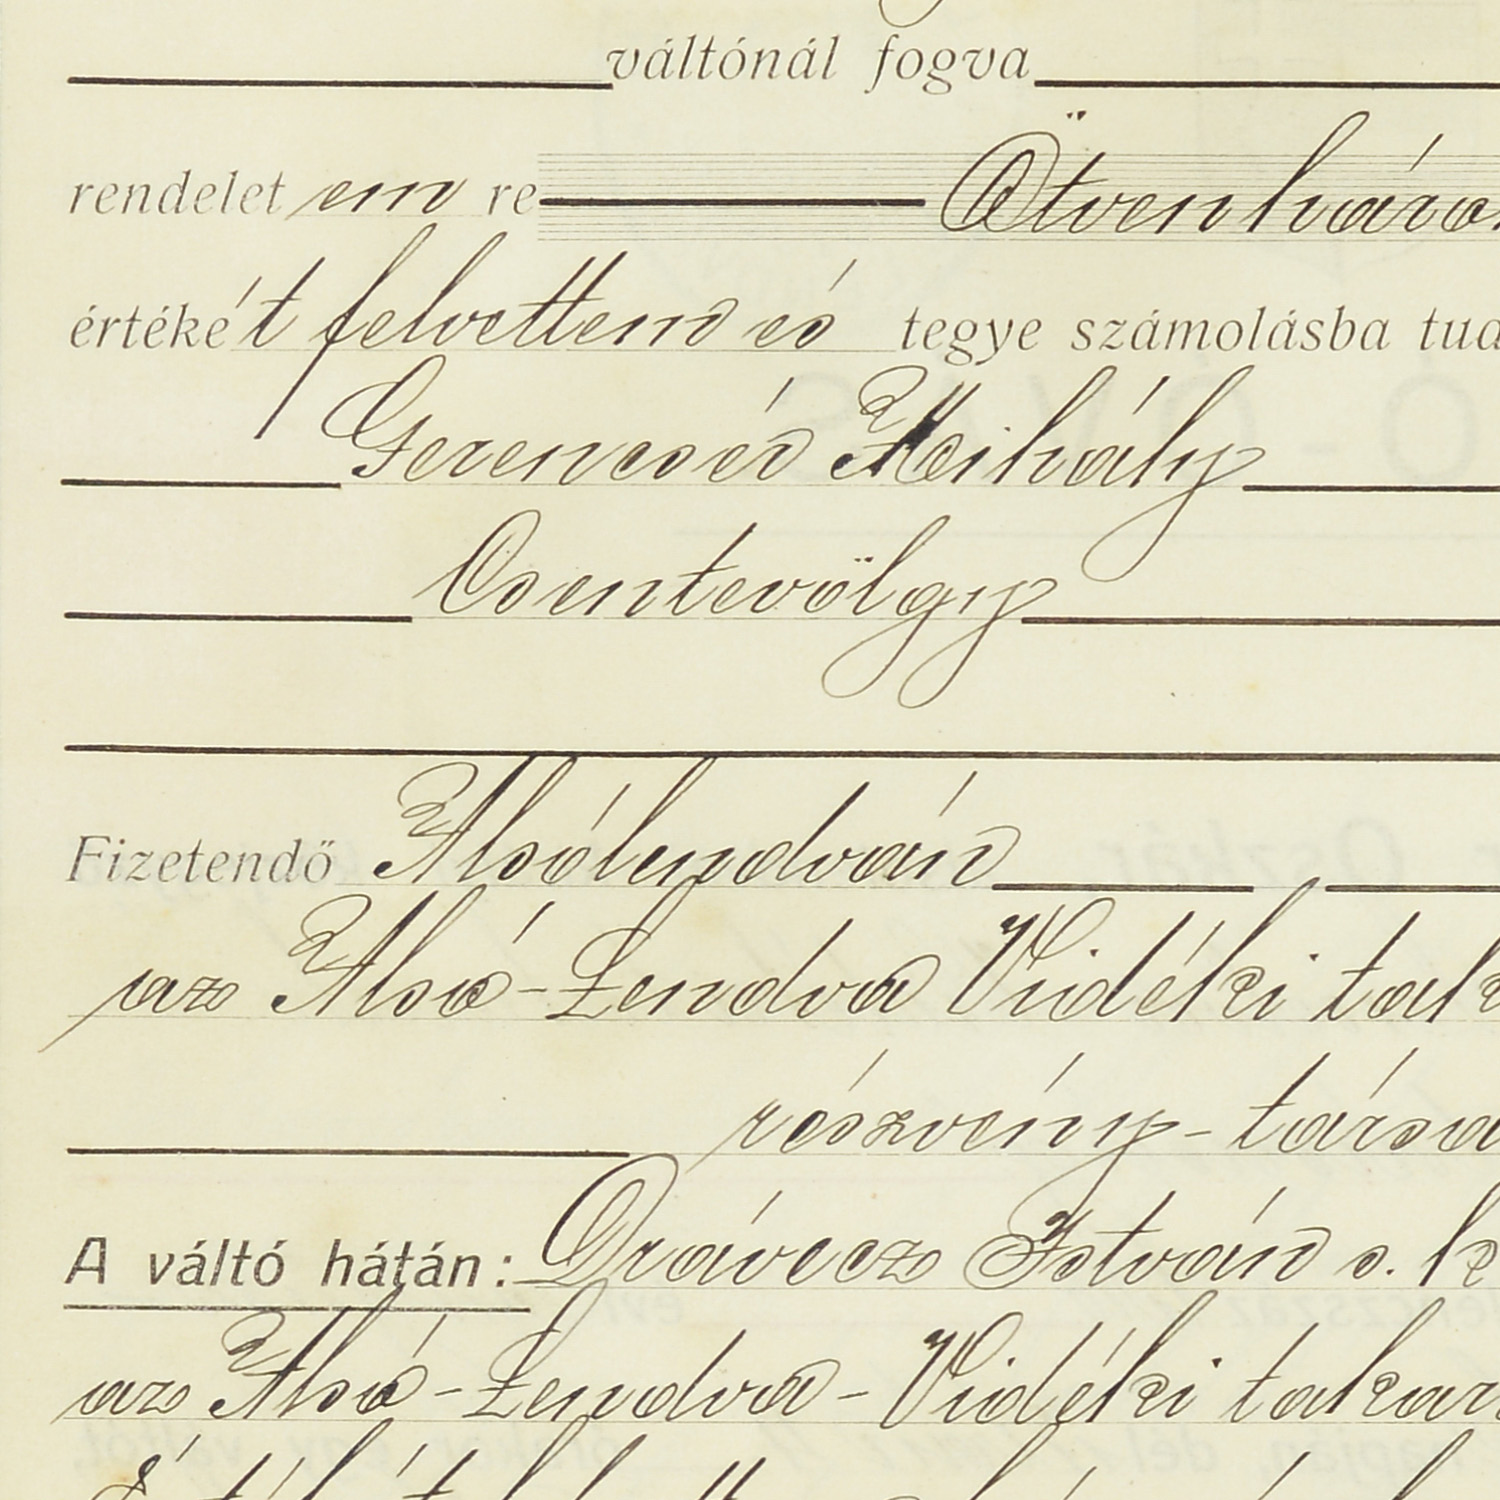 váltónál fogva
rendeletem re Ötvenháro
értékét felvettem és tegye számolásba tud
Gerencsér Mihály
Csentevölgy
Fizetendő Alsólendván
az Alsó-Lendva Vidéki tak
részvény-társa
A váltó hátán: Drávecz István s. k
az Alsó-Lendva-Vidéki takar